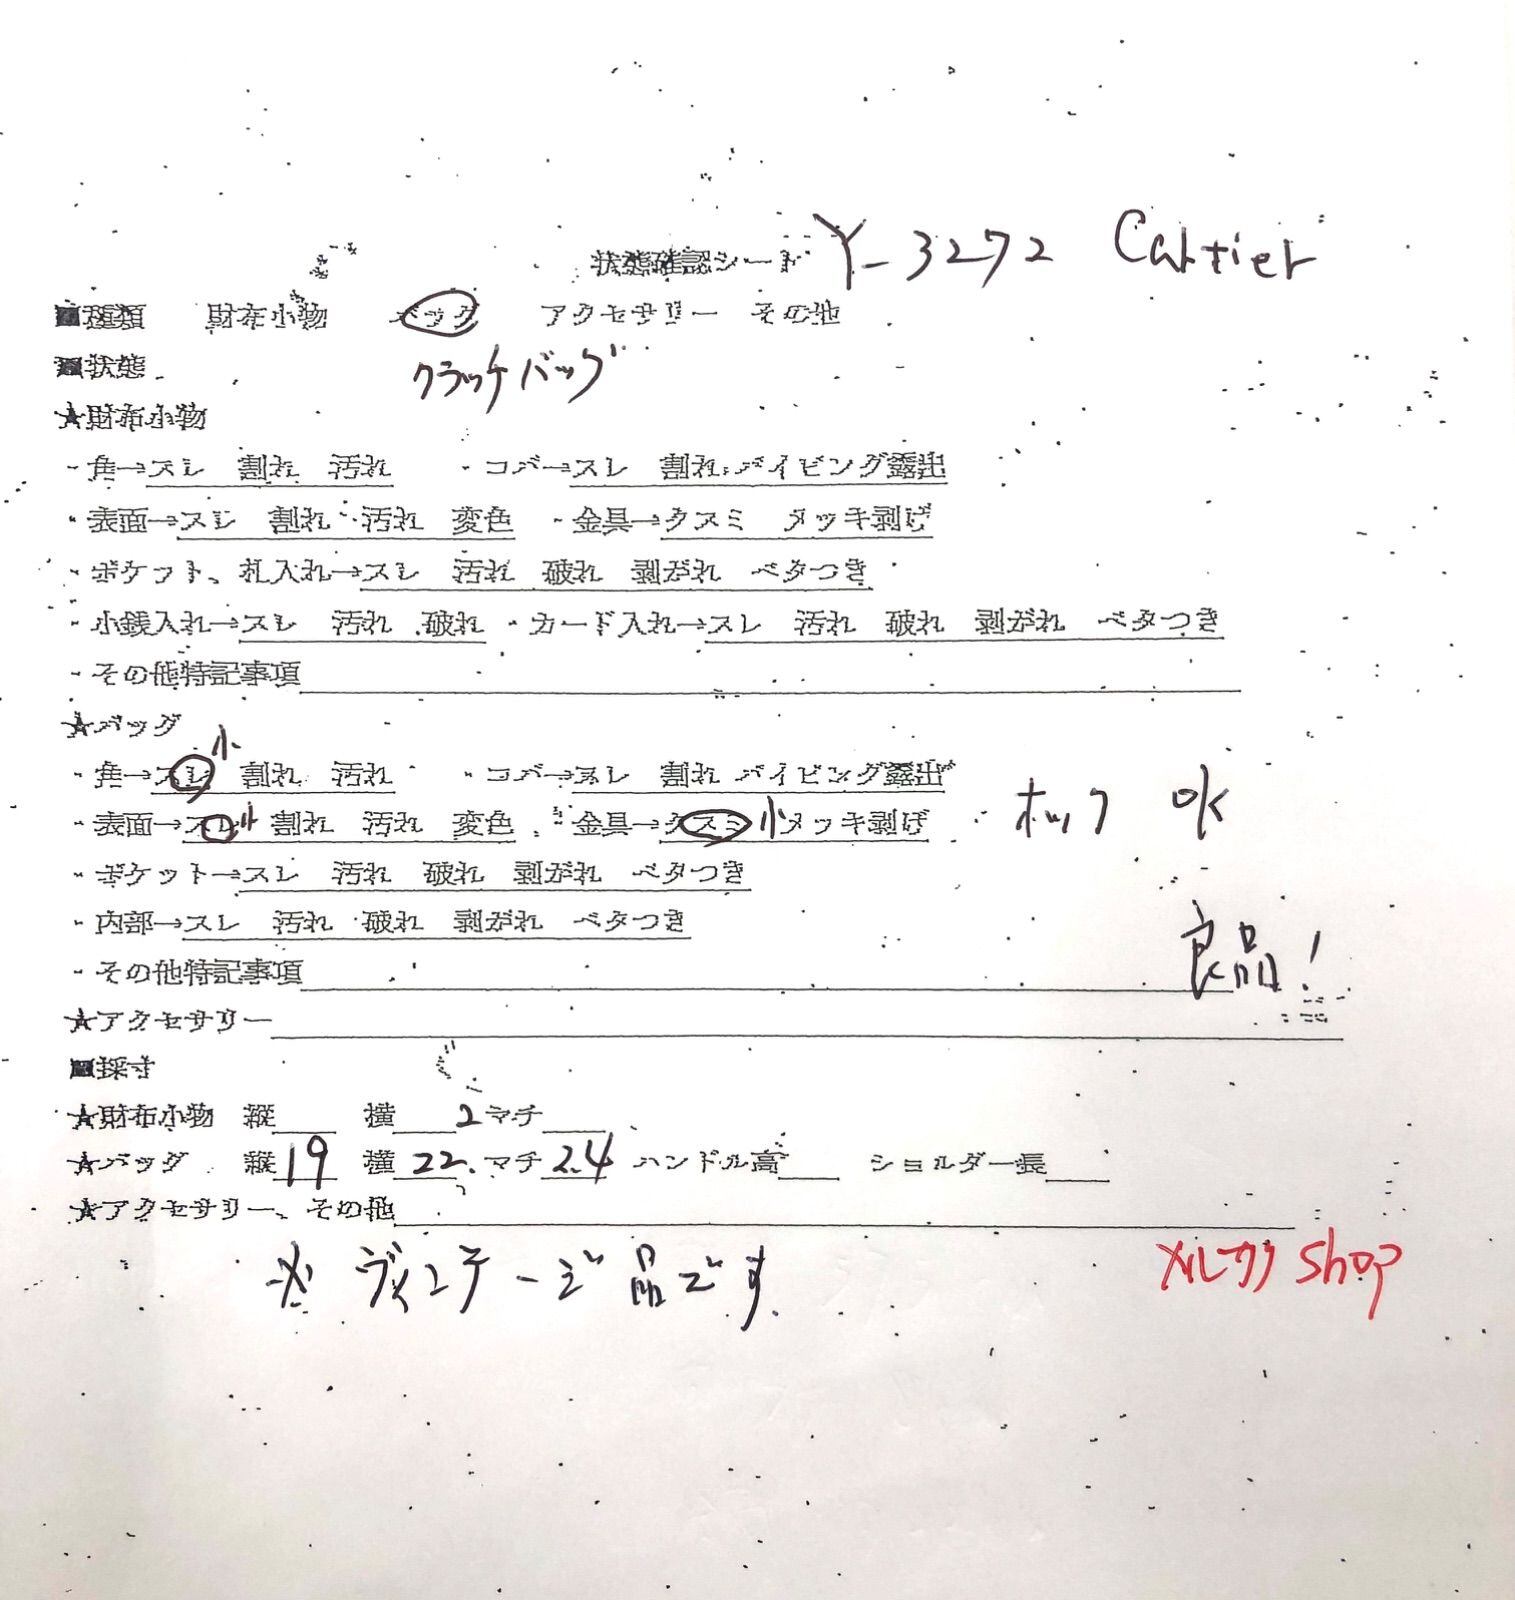 状態確認シート Y-3272 Cartier
■種類 財布小物 バッグ アクセサリー その他
■状態 クラッチバッグ
★財布小物
・角→スレ 割れ 汚れ ・コバ→スレ 割れ パイピング露出
・表面→スレ 割れ 汚れ 変色 ・金具→クスミ メッキ剥げ
・ポケット、札入れ→スレ 汚れ 破れ 剥がれ ベタつき
・小銭入れ→スレ 汚れ 破れ ・カード入れ→スレ 汚れ 破れ 剥がれ ベタつき
・その他特記事項
★バッグ
・角→スレ 小 割れ 汚れ ・コバ→スレ 割れ パイピング露出
・表面→スレ 小 割れ 汚れ 変色 ・金具→クスミ 小 メッキ剥げ ホック OK
・ポケット→スレ 汚れ 破れ 剥がれ ベタつき
・内部→スレ 汚れ 破れ 剥がれ ベタつき
良品!
・その他特記事項
★アクセサリー
■採寸
★財布小物 縦 横 2 マチ
★バッグ 縦 19 横 22. マチ 2.4 ハンドル高 ショルダー長
★アクセサリー、その他
※ ヴィンテージ品です
メルカリ shop